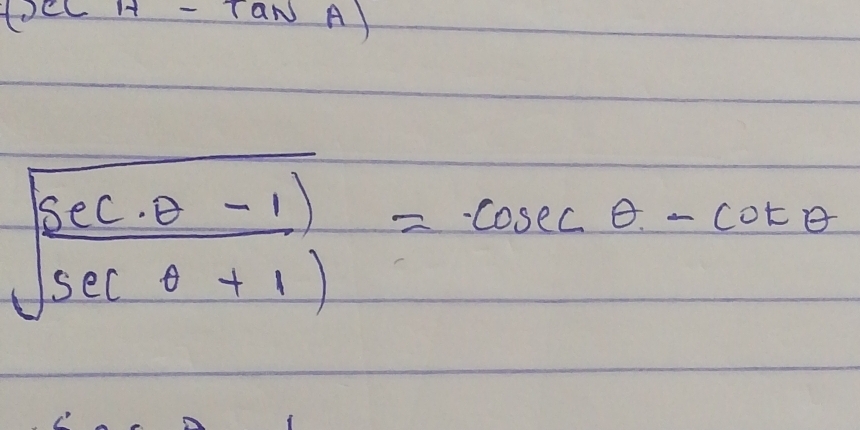 (sec A - Tan A)
√(sec.θ - 1)
sec θ + 1) = cosec θ. - cot θ